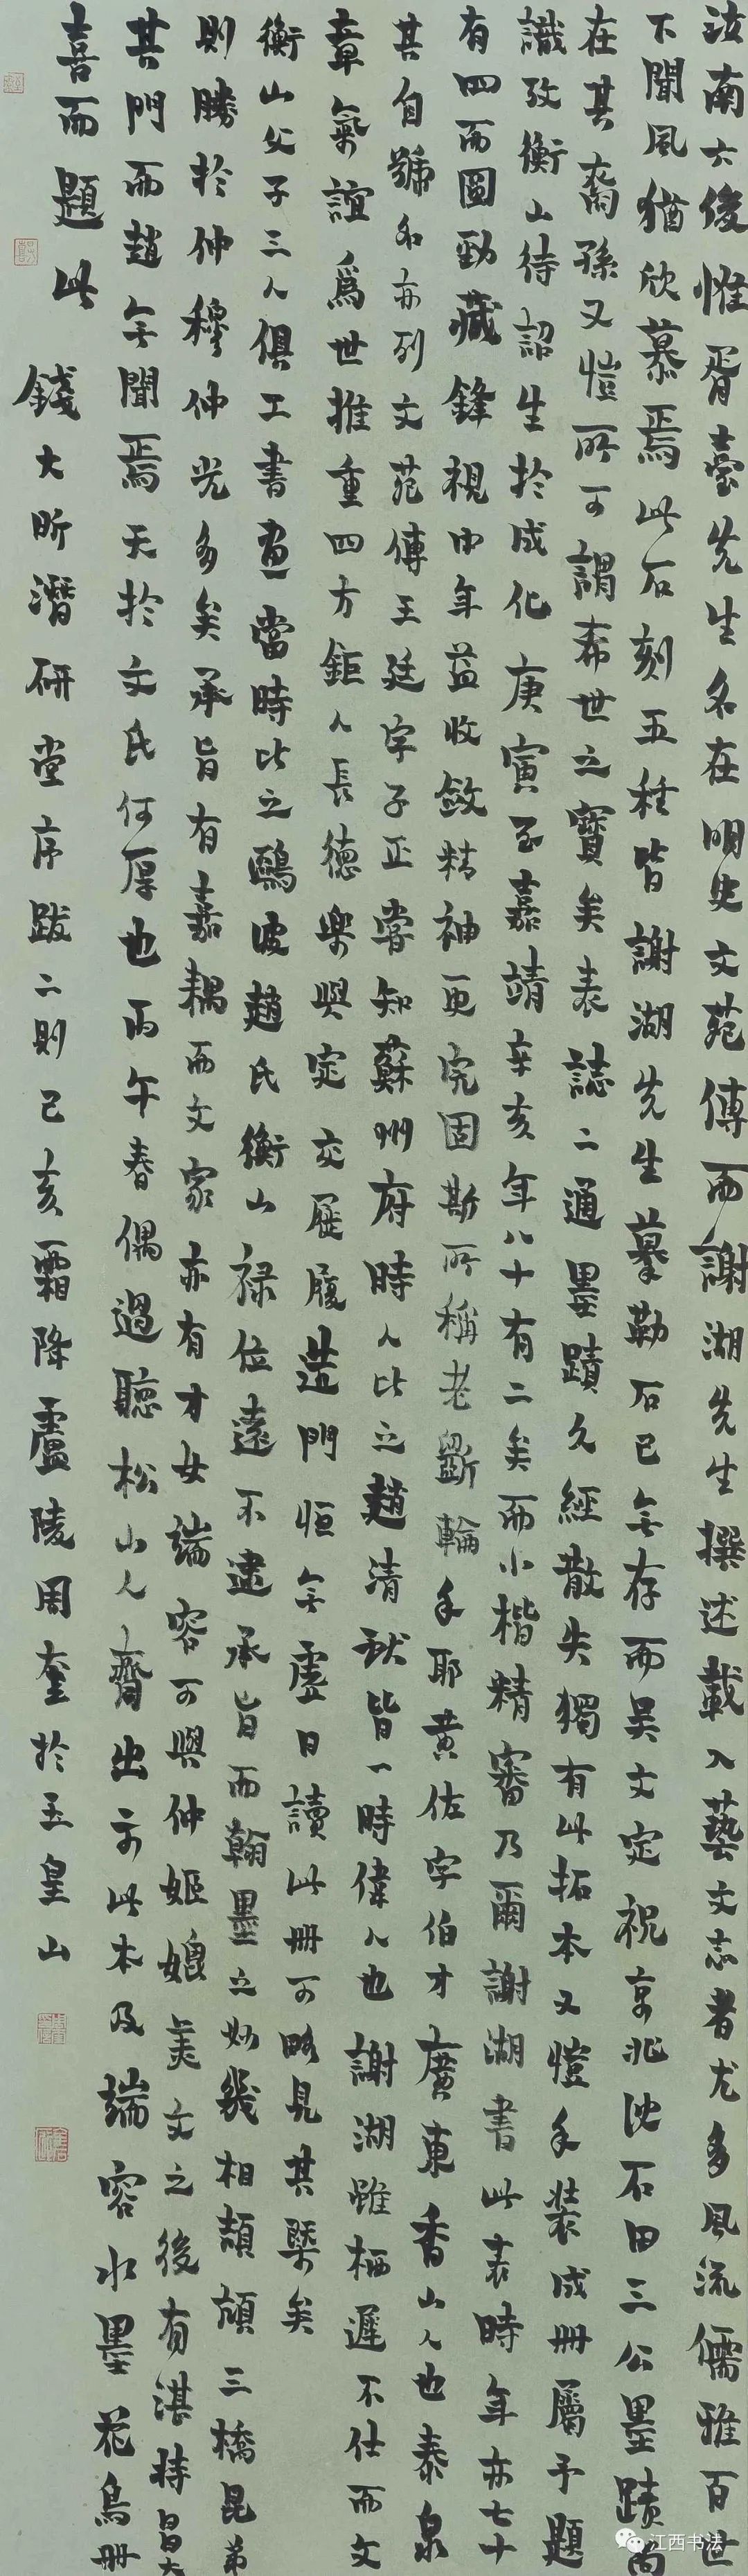 汝南六俊惟胥臺先生名在明史文苑傳而謝湖先生撰述載入藝文志者尤多風流儒雅百世
下聞風猶欣慕焉此石刻五種皆謝湖先生摹勒石已無存而吳文定祝京兆沈石田三公墨蹟尚
在其裔孫又愷所可謂希世之寶矣表誌二通墨蹟久經散失獨有此拓本又愷手裝成冊屬予題
識攷衡山待詔生於成化庚寅至嘉靖辛亥年八十有二矣而小楷精審乃爾謝湖書此表時年亦七十
有四而圓勁藏鋒視中年益收斂精神更完固斯所稱老斲輪手耶黃佐字伯才廣東香山人也泰泉
其自號名亦列文苑傳王廷字子正嘗知蘇州府時人比之趙清獻皆一時偉人也謝湖雖栖遲不仕而文
章氣誼為世推重四方鉅人長德樂與定交屐履造門恒無虛日讀此冊可略見其槩矣
衡山父子三人俱工書畫當時比之鷗波趙氏衡山祿位遠不逮承旨而翰墨之妙幾相頡頏三橋昆弟
則勝於仲穆仲光多矣承旨有嘉耦而文家亦有才女端容可與仲姬媲美文之後有湛持昌大
其門而趙無聞焉天於文氏何厚也丙午春偶過聽松山人齋出示此本及端容水墨花鳥冊
喜而題此
錢大昕潛研堂序跋二則己亥霜降廬陵周奎於玉皇山
江西书法